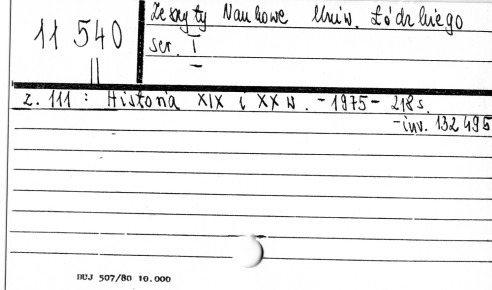 11 540
II
Zeszyty Naukowe Uniw. Łódzkiego
ser. I
z. 111 : Historia XIX i XX w. - 1975 - 218 s.
- inv. 132 495
DUJ 507/80 10.000